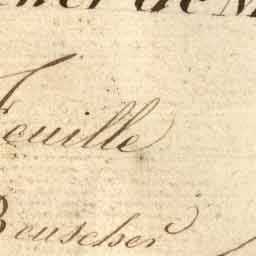 de M
Feuille
Bruscher